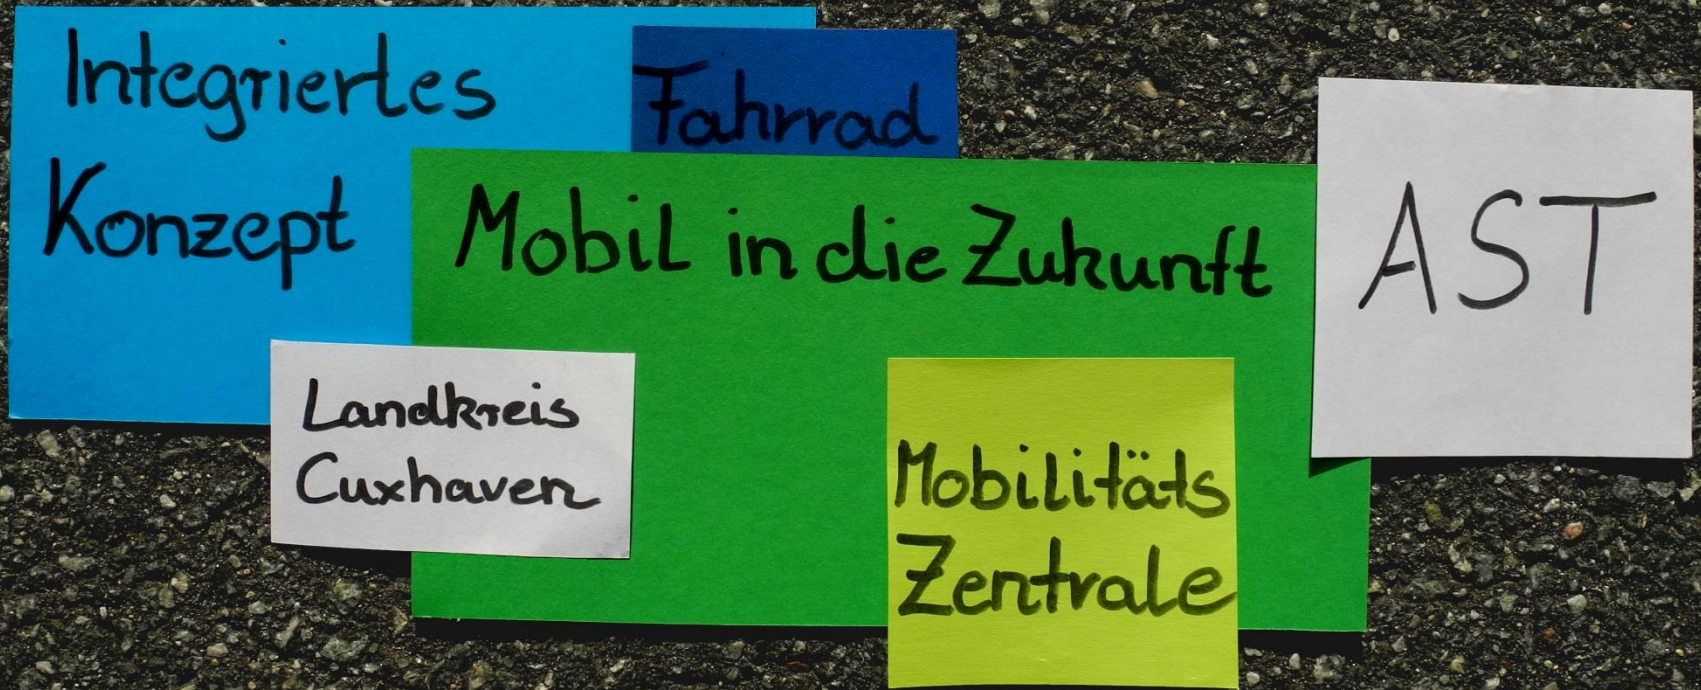 Integriertes
Konzept
Fahrrad
Mobil in die Zukunft
AST
Landkreis
Cuxhaven
Mobilitäts
Zentrale